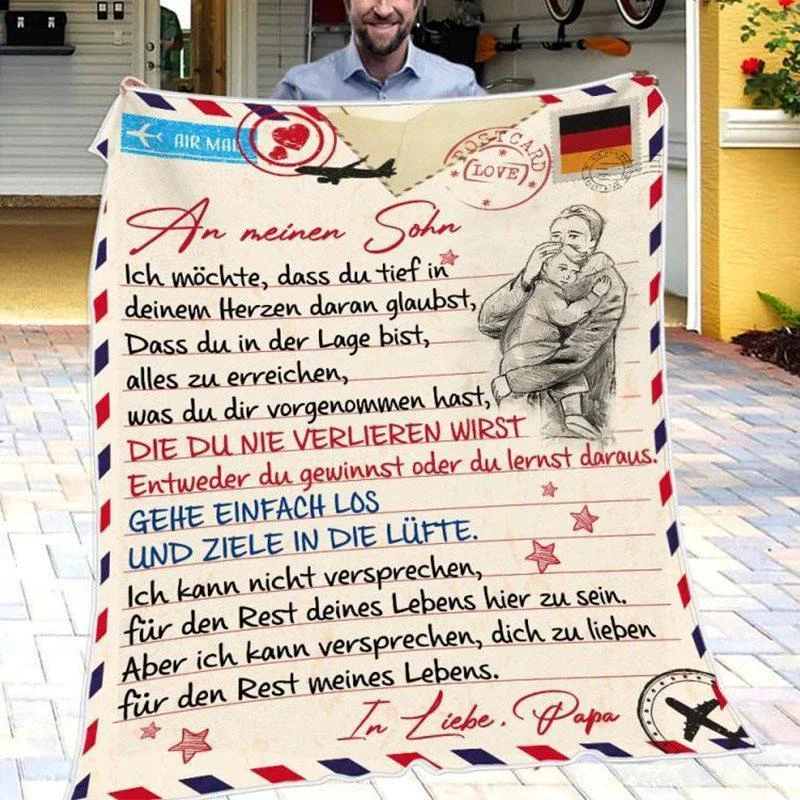 AIR MAIL
POSTCARD
LOVE
An meinen Sohn
Ich möchte, dass du tief in
deinem Herzen daran glaubst,
Dass du in der Lage bist,
alles zu erreichen,
was du dir vorgenommen hast,
DIE DU NIE VERLIEREN WIRST
Entweder du gewinnst oder du lernst daraus.
GEHE EINFACH LOS
UND ZIELE IN DIE LÜFTE.
Ich kann nicht versprechen,
für den Rest deines Lebens hier zu sein.
Aber ich kann versprechen, dich zu lieben
für den Rest meines Lebens.
In Liebe, Papa